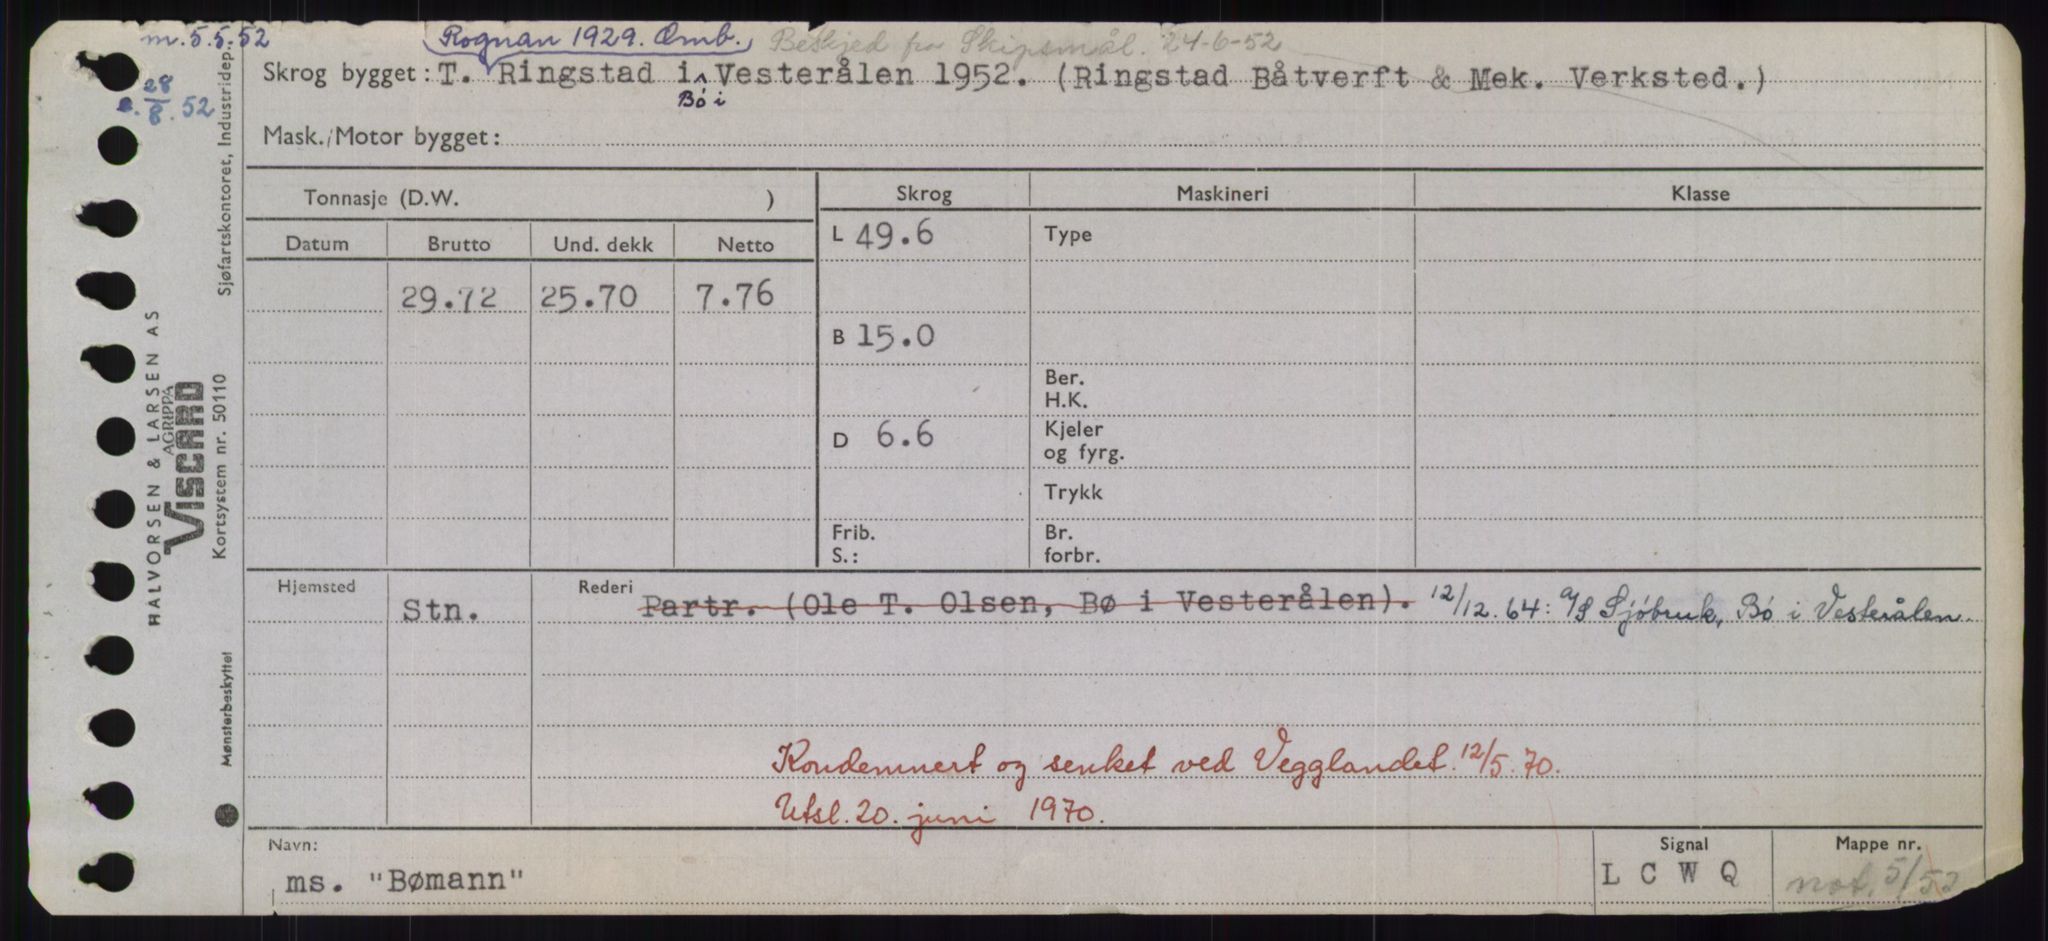 m. 5.5.52
Rognan 1929. Omb. Beskjed fra Skipsmål. 24-6-52
Skrog bygget: T. Ringstad i Vesterålen 1952. (Ringstad Båtverft & Mek. Verksted.)
Bø i
28/8. 52
Mask./Motor bygget:
Tonnasje (D.W. )
Skrog Maskineri Klasse
Datum Brutto Und. dekk Netto
L 49.6 Type
29.72 25.70 7.76
B 15.0
Ber.
H.K.
D 6.6 Kjeler
og fyrg.
Trykk
Frib. Br.
S.: forbr.
Hjemsted Rederi
Stn. Partr. (Ole T. Olsen, Bø i Vesterålen). 12/12.64: A/S Sjøbruk, Bø i Vesterålen.
Kondemnert og senket ved Vegglandet 12/5.70.
Utsl. 20. juni 1970.
Navn: Signal Mappe nr.
ms. "Bømann" L C W Q not. 5/52
Sjøfartskontoret, Industridep.
HALVORSEN & LARSEN AS
AGRIPPA
VISCARD
Kortsystem nr. 50110
Mønsterbeskyttet